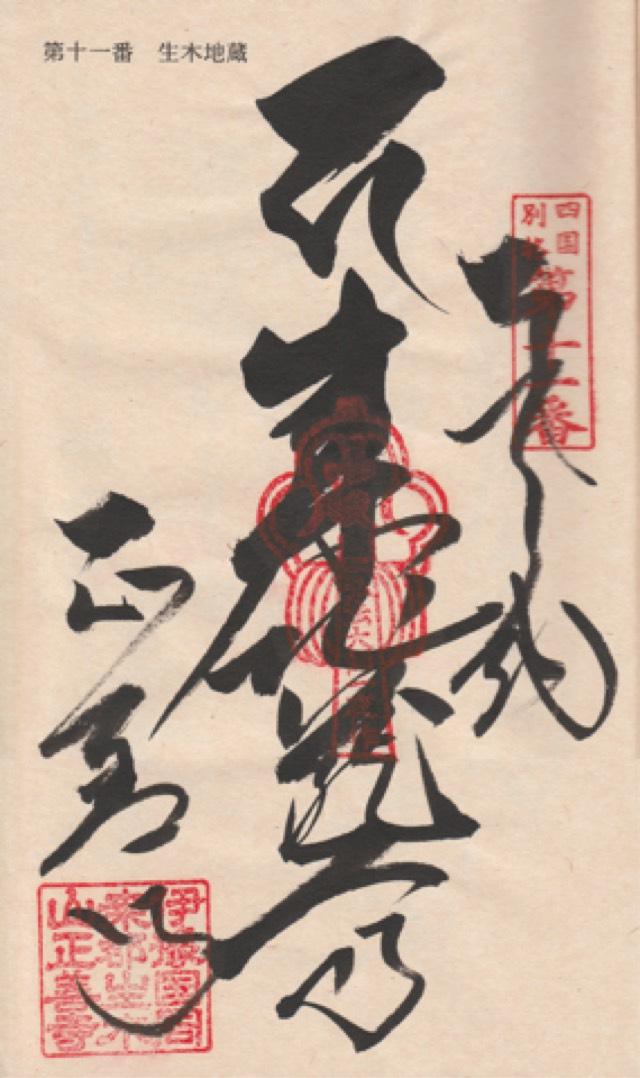 第十一番　生木地蔵
四国
別格
第十一番
奉
生木地蔵尊
正善寺
伊豫国周
桑郡生木
山正善寺